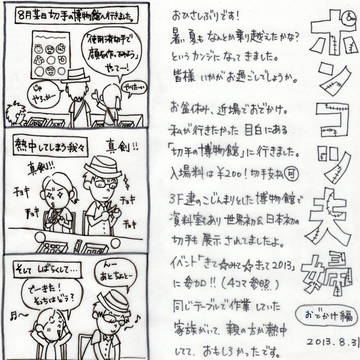 ポンコツ夫婦
おでかけ編
2013.8.31
おひさしぶりです!
暑い夏もなんとか乗り越えたかな?
というカンジになってきました。
皆様いかがお過ごしでしょうか。
お盆休み、近場でおでかけ。
私が行きたかった目白にある
「切手の博物館」に行きました。
入場料は¥200!切手支払可
3F建のこじんまりとした博物館で
資料室もあり世界初&日本初の
切手も展示されてましたよ。
イベント「きって☆みて☆きって2013」
に参加!!(4コマ参照)
同じテーブルで作業していた
家族がいて、親の方が熱中
してて、おもしろかったです。
8月某日切手の博物館へ行きました。
「使用済切手で
顔を作ってみよう」
やってー!
じゃ
やろっかー
やりたーい!
熱中してしまう我々
真剣!!
真剣!!
チョキ
チョキ
チョキ
チョキ
そして しばらくして…
でーきた!
そっちはどう?
んー
あとちょっとー